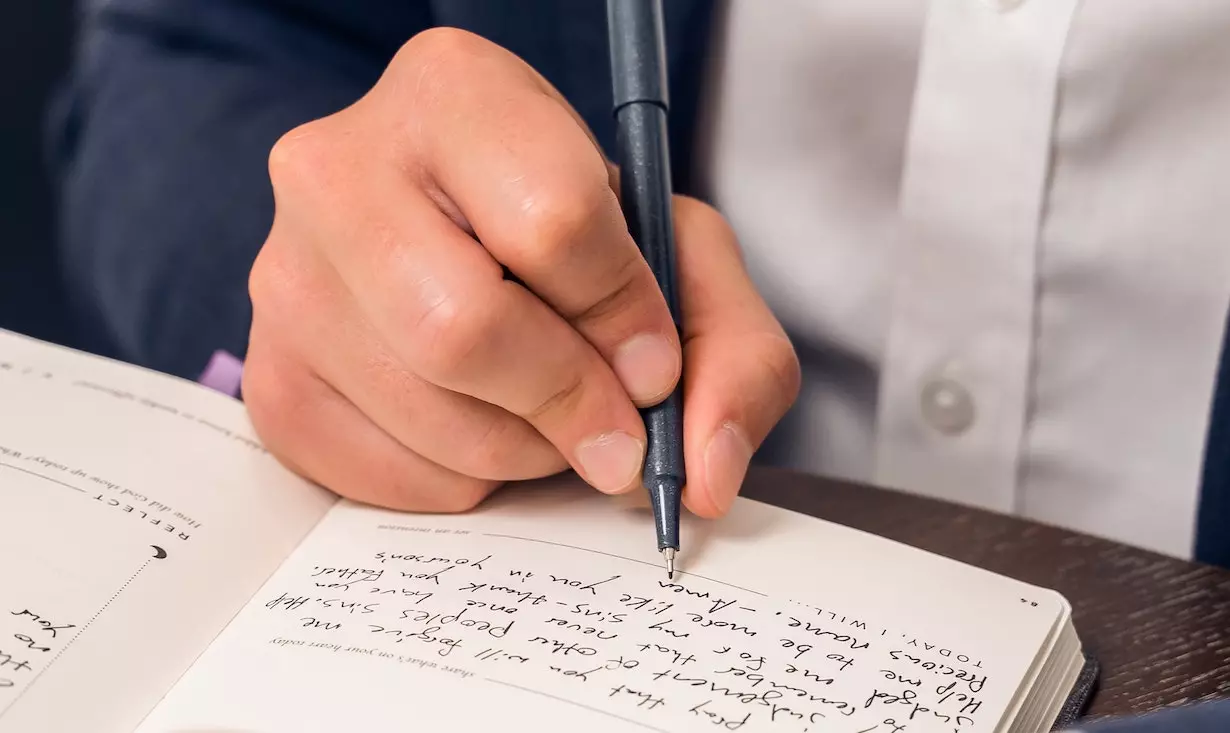 Your
no
REFLECT
How did God show up today?
share what's on your heart today
pray that you will forgive me
judgement of other peoples sins. Help
remember that never once have you
judged me for my sins - thank you Father.
Help me to be more like you in yourson's
Precious name. - Amen
TODAY, I WILL...